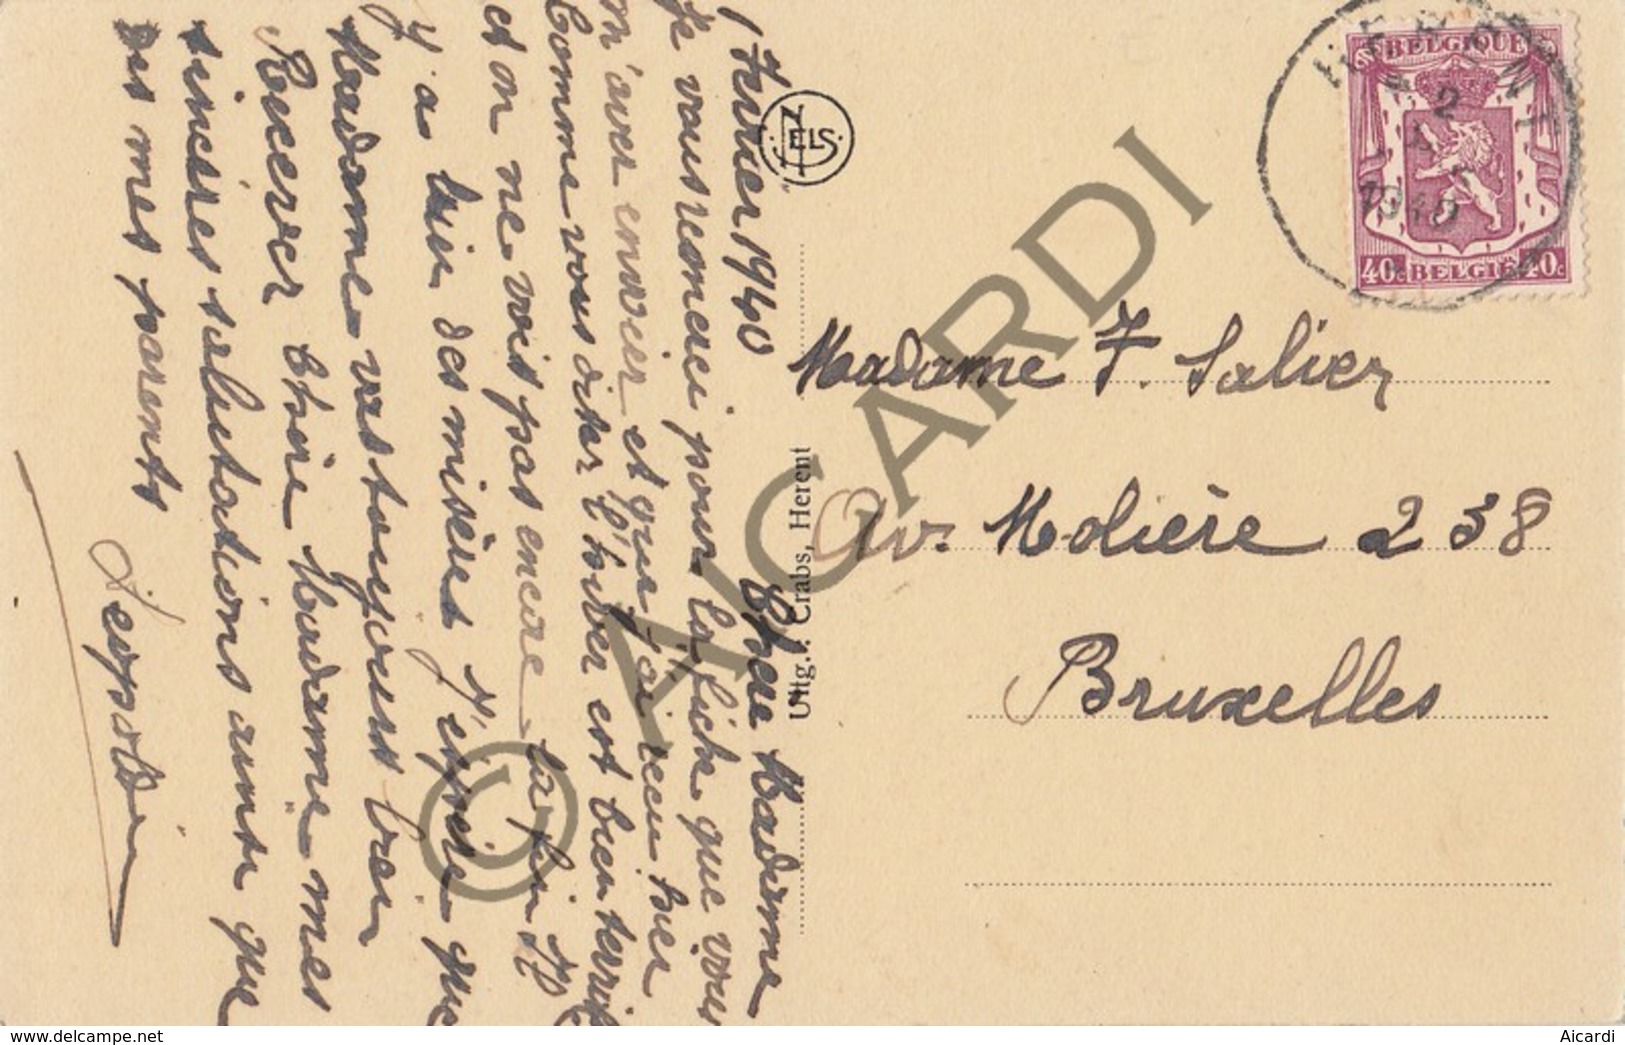 1 Fevrier 1940
Chere Madame
Je vous remerci pour la fich que vous
m'aver envoier et que j'ai recu hier
Comme vous diter l'hiver est bien terrible
et on ne vois pas encore la fin Il
y a bien des misères J'espère que
Madame vas toujours bien
Recever Chère Madame mes
sincères salutations ainsi que
des mes parents
Leopold
NELS
Uitg.: Crabs, Herent
BELGIQUE
BELGIË
40c
40c
2
1940
Madame F. Salier
Av. Molière 238
Bruxelles
© AICARDI
www.delcampe.net
Aicardi